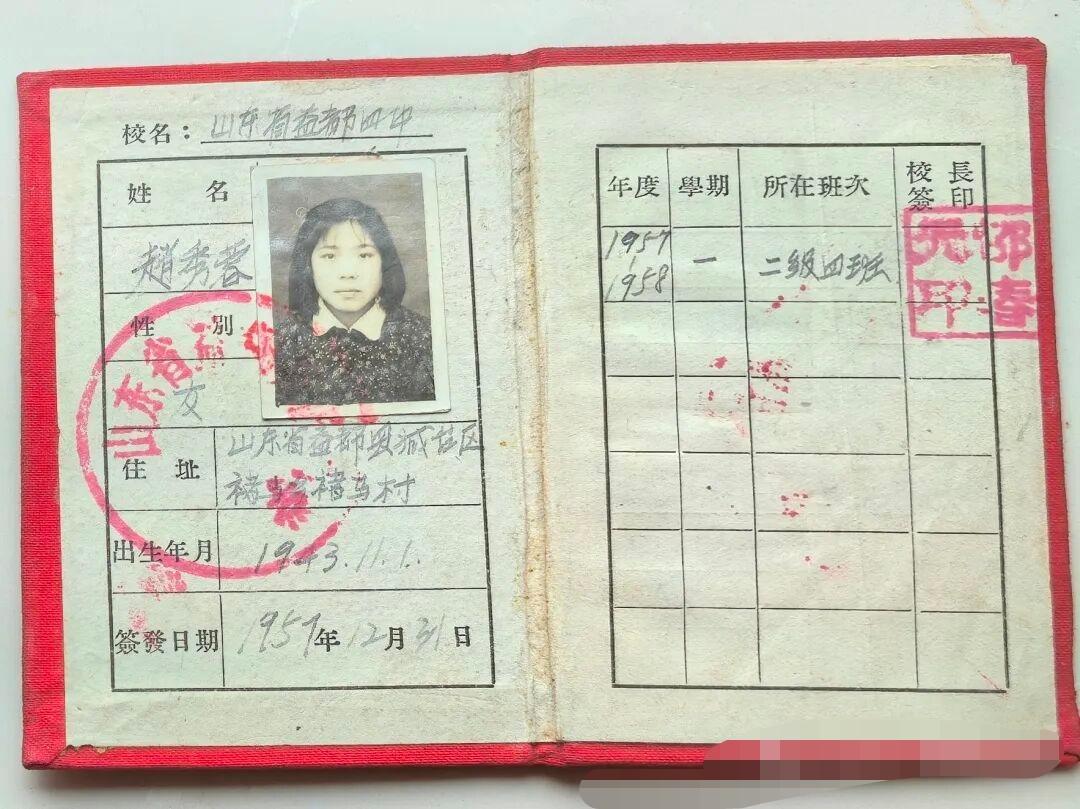 校名：山东省益都四中
姓名
趙秀蓉
性別
女
住址
山东省益都县城 区
褚马 褚马村
出生年月
1943.11.1.
簽發日期
1957年12月31日
山东省
年度
學期
所在班次
校長簽印
1957
1958
一
二级四班
邻
春
印